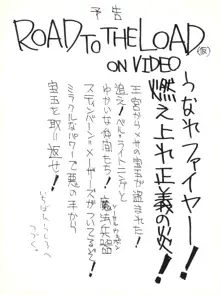 予告
ROAD TO THE LOAD(仮)
ON VIDEO
うなれファイヤー!!
燃え上れ正義の炎!
王宮からメオの宝玉が盗まれた!
追え!ベル・ライトニングと
ゆかいな仲間たち!魔法兵器
スティンバーン=メーザーズがついてるぞ!
ミラクルなパワーで悪の手から
宝玉を取り返せ!
いちばんくるしろへ
つづく。